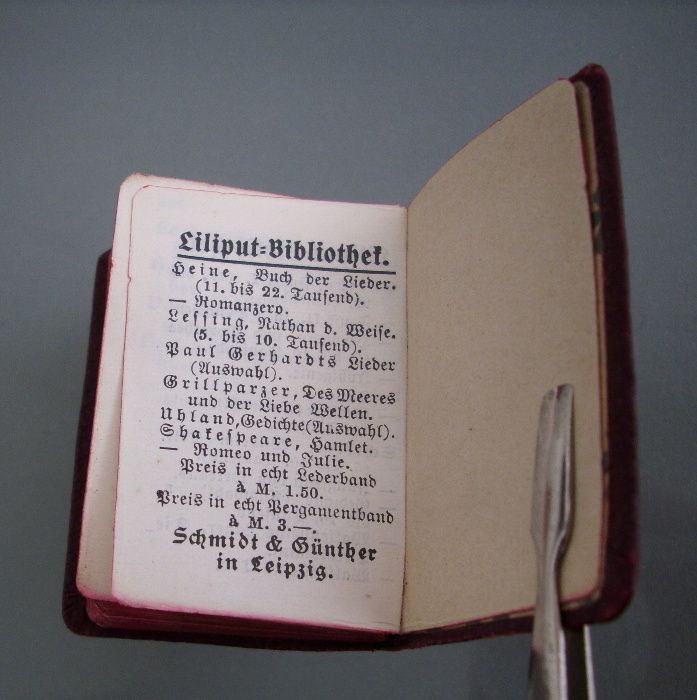 Liliput=Bibliothek.
Heine, Buch der Lieder.
(11. bis 22. Tausend).
— Romanzero.
Lessing, Nathan d. Weise.
(5. bis 10. Tausend).
Paul Gerhardts Lieder
(Auswahl).
Grillparzer, Des Meeres
und der Liebe Wellen.
Uhland, Gedichte (Auswahl).
Shakespeare, Hamlet.
— Romeo und Julie.
Preis in echt Lederband
à M. 1.50.
Preis in echt Pergamentband
à M. 3.—.
Schmidt & Günther
in Leipzig.